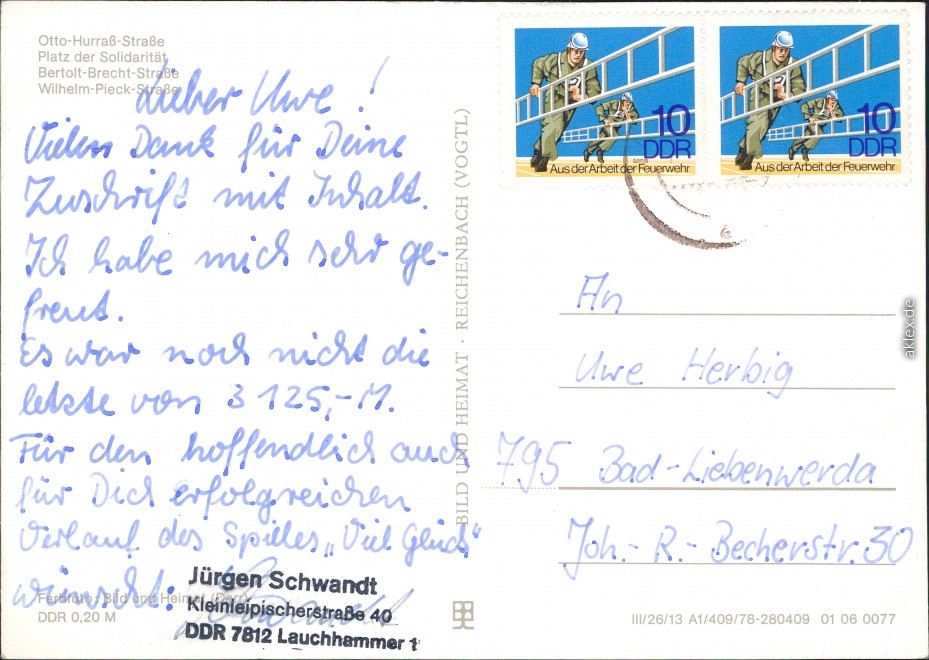 Otto-Hurraß-Straße
Platz der Solidarität
Bertolt-Brecht-Straße
Wilhelm-Pieck-Straße
Lieber Uwe!
Vielen Dank für Deine
Zuschrift mit Inhalt.
Ich habe mich sehr ge-
freut.
Es war noch nicht die
letzte von 3 125,-M.
Für den hoffendlich auch
für Dich erfolgreichen
Verlauf des Spilles „Viel Glück"
wünscht:
Farbfoto: Bild und Heimat (Darr)
DDR 0,20 M
Jürgen Schwandt
Kleinleipischerstraße 40
DDR 7812 Lauchhammer 1
BILD UND HEIMAT · REICHENBACH (VOGTL)
10
DDR
Aus der Arbeit der Feuerwehr
10
DDR
Aus der Arbeit der Feuerwehr
An
Uwe Herbig
795 Bad-Liebenwerda
Joh.-R.-Becherstr. 30
III/26/13 A1/409/78-280409 01 06 0077
aklex.de